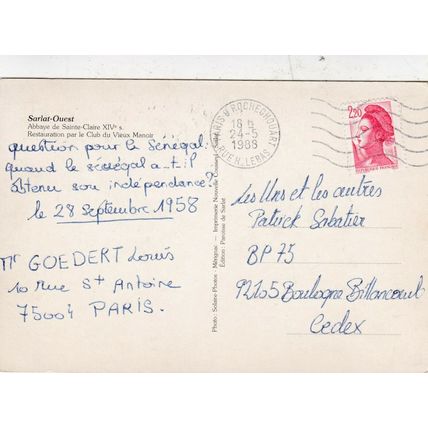 Sarlat-Ouest
Abbaye de Sainte-Claire XIVᵉ s.
Restauration par le Club du Vieux Manoir
question pour le Sénégal:
quand le sénégal a-t-il
obtenu son indépendance?
le 28 septembre 1958
Mr GOEDERT Louis
10 rue St Antoine
75004 PARIS.
Photo : Solaire-Photos - Mérignac — Imprimerie Nouvelle
Édition : Paroisse de Sarlat
PARIS 9 ROCHECHOUART
18 H
24-5
1988
RUE H. LEBAS
2,20
RÉPUBLIQUE FRANÇAISE
Les Uns et les autres
Patrick Sabatier
BP 75
92105 Boulogne Billancourt
Cedex